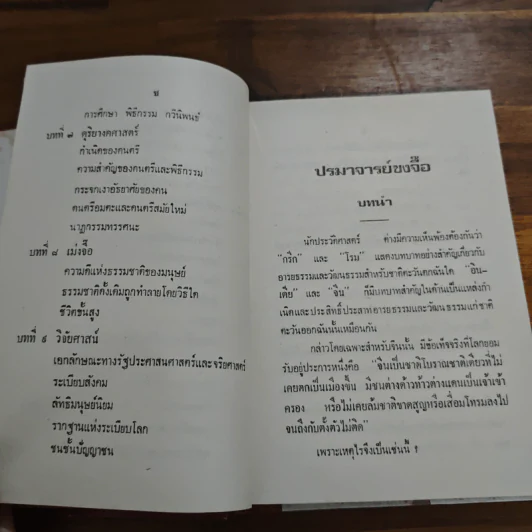 ช
การศึกษา พิธีกรรม กวีนิพนธ์
บทที่ ๗ ดุริยางคศาสตร์
กำเนิดของดนตรี
ความสำคัญของดนตรีและพิธีกรรม
กระจกเงาอัธยาศัยของคน
ดนตรีอมตะและดนตรีสมัยใหม่
นาฏกรรมทรรศนะ
บทที่ ๘ เม่งจื๊อ
ความดีแห่งธรรมชาติของมนุษย์
ธรรมชาติดั้งเดิมถูกทำลายโดยวิธีใด
ชีวิตชั้นสูง
บทที่ ๙ วิจัยศาสน์
เอกลักษณะทางรัฐประศาสนศาสตร์และจริยศาสตร์
ระเบียบสังคม
ลัทธิมนุษย์นิยม
รากฐานแห่งระเบียบโลก
ชนชั้นปัญญาชน
ปรมาจารย์ขงจื๊อ
บทนำ
นักประวัติศาสตร์ ต่างมีความเห็นพ้องต้องกันว่า
“กรีก” และ “โรม” แสดงบทบาทอย่างสำคัญเกี่ยวกับ
อารยธรรมและวัฒนธรรมสำหรับชาติตะวันตกฉันใด “อิน-
เดีย” และ “จีน” ก็มีบทบาทสำคัญในด้านเป็นแหล่งกำ
เนิดและประสิทธิ์ประสาทอารยธรรมและวัฒนธรรมแก่ชาติ
ตะวันออกฉันนั้นเหมือนกัน
กล่าวโดยเฉพาะสำหรับจีนนั้น มีข้อเท็จจริงที่โลกยอม
รับอยู่ประการหนึ่งคือ “จีนเป็นชาติโบราณชาติเดียวที่ไม่
เคยตกเป็นเมืองขึ้น มีชนต่างด้าวท้าวต่างแดนเป็นเจ้าเข้า
ครอง หรือไม่เคยล้มชาติขาดสูญหรือเสื่อมโทรมลงไป
จนถึงกับตั้งตัวไม่ติด”
เพราะเหตุไรจึงเป็นเช่นนี้ ?